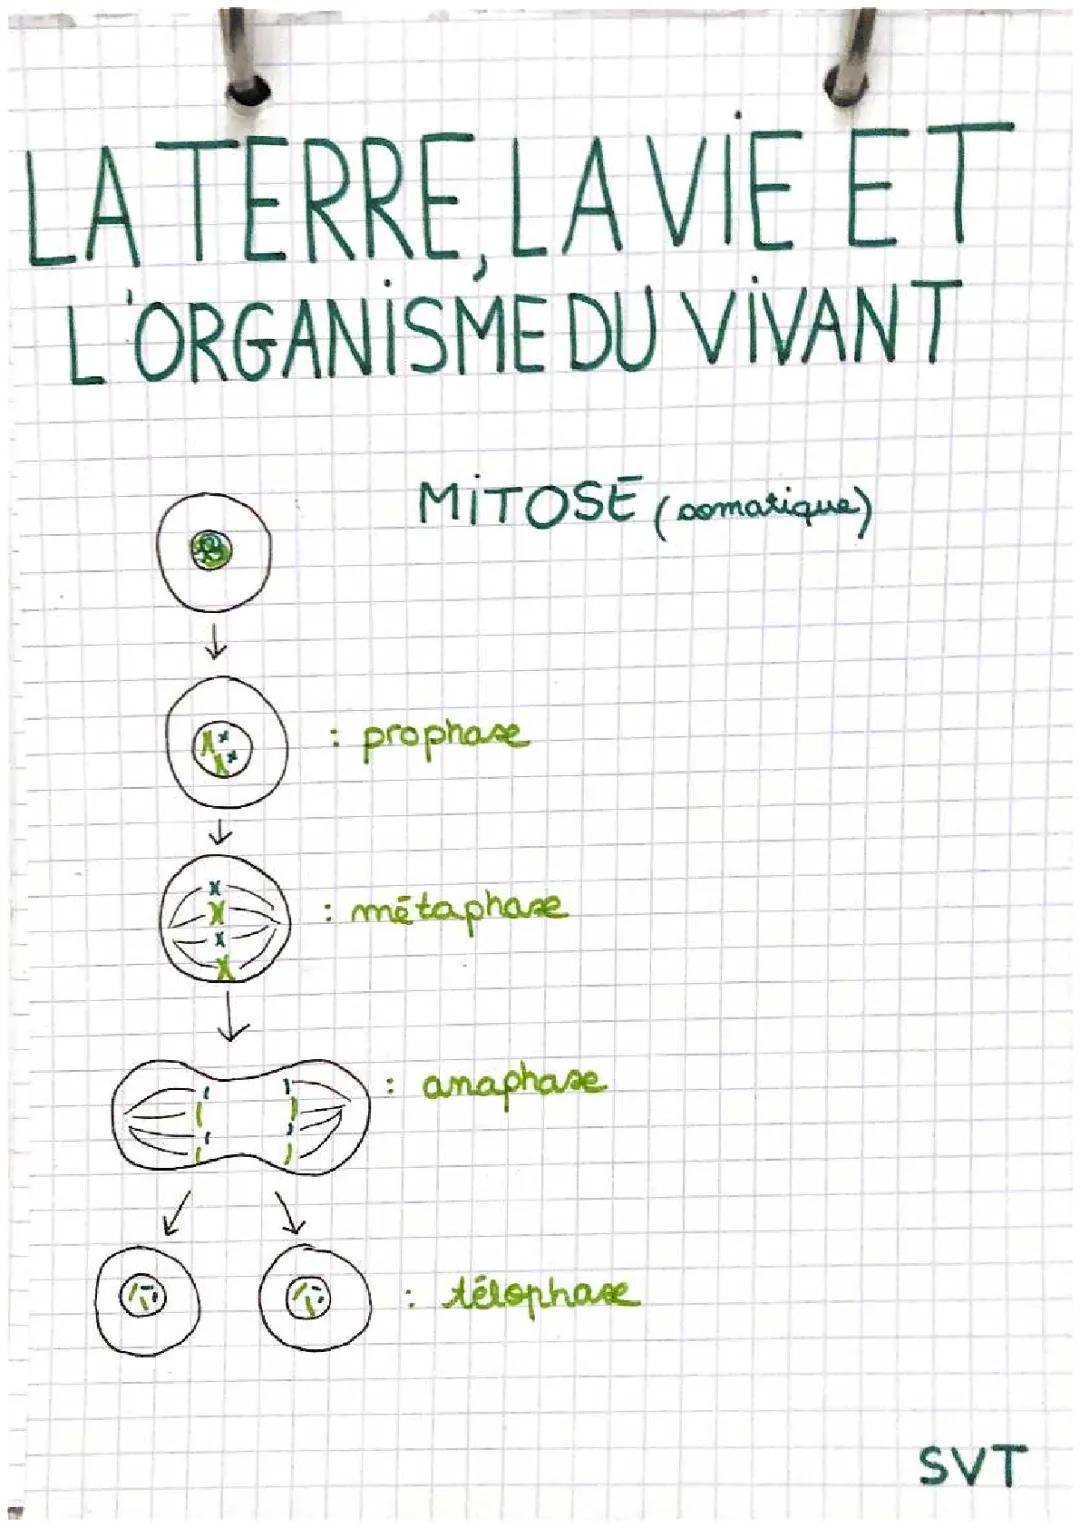 LA TERRE, LA VIE ET
L'ORGANISME DU VIVANT
MITOSE (somatique)
: prophase
: métaphase
: anaphase
: télophase
SVT